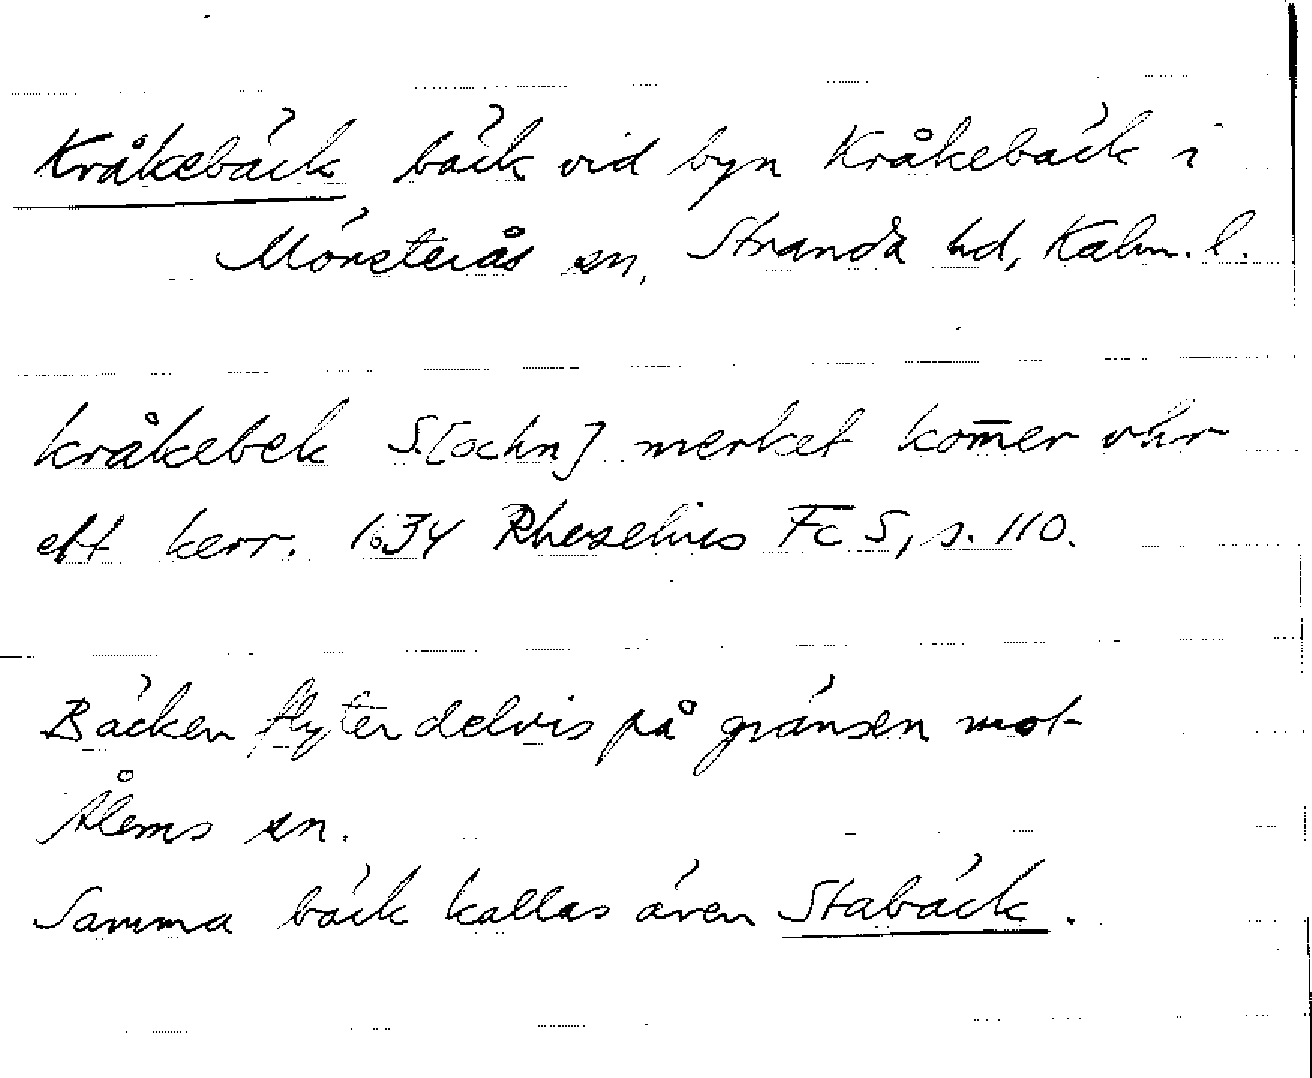 Kråkebäck bäck vid byn Kråkebäck i
Mönsterås sn, Stranda hd, Kalm. l.
kråkebek S[ochn] merket kom̄er vhr
ett kerr. 1634 Rhezelius Fc 5, s. 110.
Bäcken flyter delvis på gränsen mot
Ålems sn.
Samma bäck kallas även Stabäck.